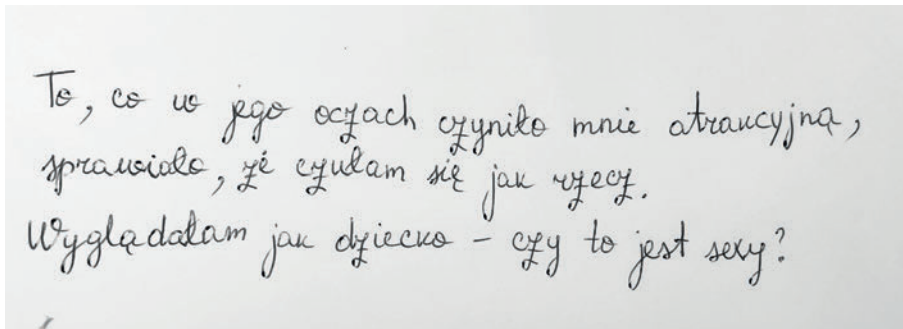 To, co w jego oczach czyniło mnie atrakcyjną,
sprawiało, że czułam się jak rzecz.
Wyglądałam jak dziecko - czy to jest sexy?